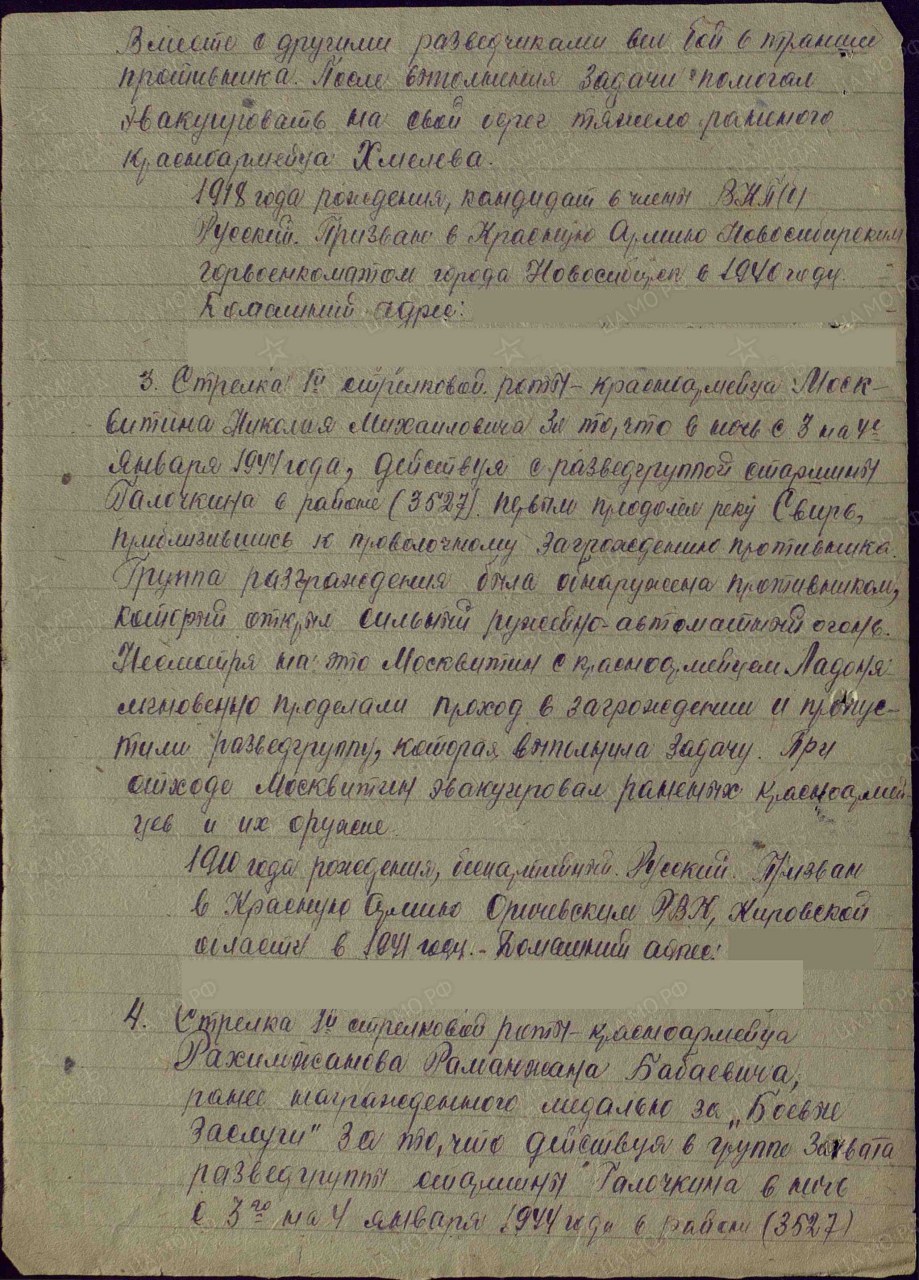 Вместе с другими разведчиками вел бой в траншее
противника. После выполнения задачи помогал
эвакуировать на свой берег тяжело раненого
красноармейца Хмелева.
1918 года рождения, кандидат в члены ВКП(б)
Русский. Призван в Красную Армию Новосибирским
горвоенкоматом города Новосибирск в 1940 году.
Домашний адрес:
3. Стрелка 1й стрелковой роты - красноармейца Моск-
витина Николая Михайловича За то, что в ночь с 3 на 4е
января 1944 года, действуя с разведгруппой старшины
Галочкина в районе (3527) первым преодолел реку Свирь,
приблизившись к проволочному заграждению противника.
Группа разграждения была обнаружена противником,
который открыл сильный ружейно-автоматный огонь.
Несмотря на это Москвитин с красноармейцем Ладоня
мгновенно проделали проход в заграждении и пропус-
тили разведгруппу, которая выполнила задачу. При
отходе Москвитин эвакуировал раненых красноармей-
цев и их оружие.
1910 года рождения, беспартийный. Русский. Призван
в Красную Армию Оричевским РВК, Кировской
области в 1941 году. - Домашний адрес:
4. Стрелка 1й стрелковой роты - красноармейца
Рахимжанова Раманжана Бабаевича,
ранее награжденного медалью за „Боевые
Заслуги" За то, что действуя в группе Захвата
разведгруппы старшины Галочкина в ночь
с 3го на 4 января 1944 года в районе (3527)